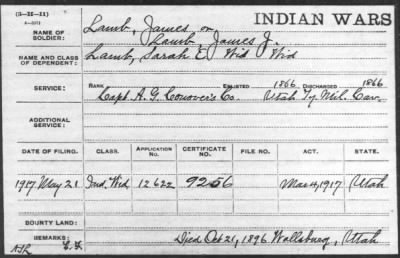 (3-25-11)
INDIAN WARS
NAME OF SOLDIER: Lamb, James or
Lamb, James J.
NAME AND CLASS OF DEPENDENT: Lamb, Sarah E. Wid Wid
SERVICE: RANK ENLISTED 1866 DISCHARGED 1866
Capt. A. G. Conover's Co. Utah Ty. Mil. Cav.
ADDITIONAL SERVICE:
DATE OF FILING. CLASS. APPLICATION NO. CERTIFICATE NO. FILE NO. ACT. STATE.
1917 May 21 Ind. Wid 12622 9256 Mar 4, 1917 Utah
BOUNTY LAND:
REMARKS: Died Oct 21, 1896 Wallsburg, Utah